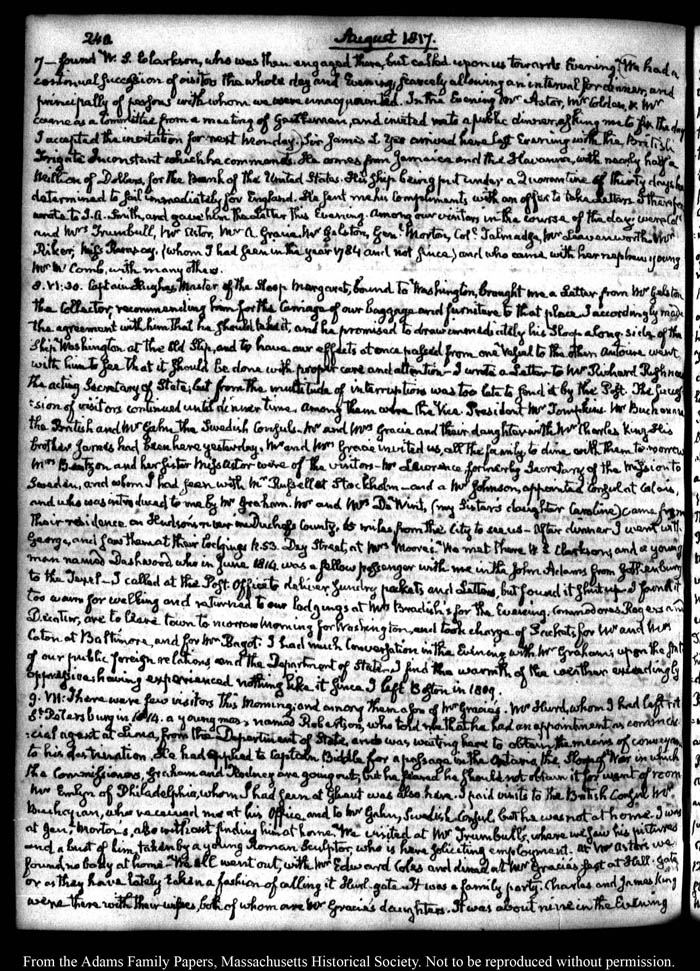 240
August 1817.
7— found W. S. Clarkson, who was then engaged there, but called upon us towards Evening. We had a
continual succession of visitors the whole day and Evening, scarcely allowing an interval for dinner, and
principally of persons with whom we were unacquainted. In the Evening Mr Astor, Mr Colden, & Mr
came as a Committee from a meeting of Gentlemen, and invited me to a public dinner, asking me to fix the day
I accepted the invitation for next Monday. Sir James L. Yeo arrived here last Evening with the British
Frigate Inconstant which he commands. He comes from Jamaica and the Havanna, with nearly half a
Million of Dollars, for the Bank of the United States. His Ship being put under a Quarantine of thirty days he
determined to sail immediately for England. He sent me his compliments with an offer to take letters. I therefore
wrote to J. A. Smith, and gave him the letter this Evening. Among our visitors in the course of the day were Coll
and Mrs Trumbull, Mr Astor, Mr A. Gracie, Mr Gelston, Genl Morton, Coll Talmadge, Mr Leavenworth, Mr
Riker, Miss Ramsay, (whom I had seen in the year 1784 and not since) and who came with her nephew young
Mr McComb, with many others.
8. VI:30. Captain Hughes, Master of the Sloop Margaret, bound to Washington, brought me a Letter from Mr Gelston
the Collector, recommending him for the carriage of our baggage and furniture to that place. I accordingly made
the agreement with him that he should take it, and he promised to draw immediately his Sloop along side of the
Ship Washington at the Old Slip, and to have our effects at once passed from one Vessel to the other. Antoine went
with him to see that it should be done with proper care and attention— I wrote a Letter to Mr Richard Rush now
the acting Secretary of State; but from the multitude of interruptions was too late to send it by the Post. The succes-
-sion of visitors continued until dinner time. Among them were the Vice President Mr Tompkins. Mr Buchanan
the British and Mr Gahn the Swedish Consuls. Mr and Mrs Gracie and their daughter with Mr Charles King. His
brother James had been here yesterday. Mr and Mrs Gracie invited us, all the family to dine with them to-morrow
Mrs Bentzon and her Sister Miss Astor were of the visitors— Mr Lawrence formerly Secretary of the Mission to
Sweden, and whom I had seen with Mr Russell at Stockholm— and a Mr Johnson, appointed Consul at
and who was introduced to me by Mr Graham. Mr and Mrs De Wint, (my Sister's daughter Caroline) came from
their residence on Hudson's river in Duchess County, 65 miles from the City to see us— After dinner I went with
George, and saw them at their lodgings N. 53. Day Street, at Mrs Moore's. We met there W. S. Clarkson, and a young
man named Dashwood who in June 1814 was a fellow passenger with me in the John Adams from Gothenburg
to the Texel— I called at the Post Office to deliver sundry packets and Letters, but found it shut up. I found it
too warm for walking and returned to our lodgings at Mrs Bradish's for the Evening. Commodores Rogers and
Decatur, are to leave town to-morrow morning for Washington, and took charge of Packets for Mr and Mrs
Caton at Baltimore, and for Mr Bagot. I had much conversation in the Evening with Mr Graham, upon the state
of our public foreign relations and the Department of State— I find the warmth of the weather exceedingly
oppressive; having experienced nothing like it since I left Boston in 1809.
9. VII: There were few visitors this Morning; and among them a son of Mr Gracie's. Mr Hurd, whom I had left at
St. Petersburg in 1814. a young man named Robertson, who told me that he had an appointment as commer-
-cial agent at Lima, from the Department of State, and was waiting here to obtain the means of conveyance
to his destination. He had applied to Captain Biddle for a passage in the Ontario, the Sloop of War in which
the Commissioners, Graham and Rodney are going out; but he feared he should not obtain it for want of room
Mr Emlyn of Philadelphia, whom I had seen at Ghent was also here. I paid visits to the British Consul Mr
Buchanan, who received me at his Office, and to Mr Gahn, Swedish Consul, but he was not at home. I was
at Genl Morton's, also without finding him at home. We visited at Mr Trumbull's, where we saw his pictures
and a bust of him, taken by a young Roman Sculptor, who is here soliciting employment. At Mr Astor's we
found no body at home. We all went out, with Mr Edward Coles and dined at Mr Gracie's seat at Hell-Gate
or as they have lately taken a fashion of calling it Hurl-gate. It was a family party. Charles and James King
were there with their wives, both of whom are Mr Gracie's daughters. It was about nine in the Evening
From the Adams Family Papers, Massachusetts Historical Society. Not to be reproduced without permission.